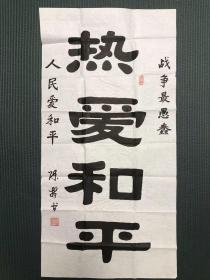 战争最愚蠢
热爱和平
人民爱和平